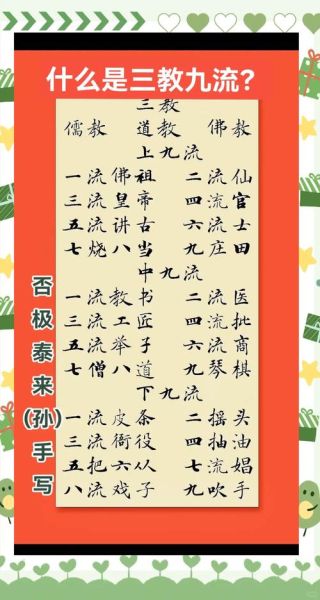 什么是三教九流?
三教
儒教 道教 佛教
上九流
一流佛祖 二流仙
三流皇帝 四流官
五流讲古 六流士
七烧八当 九庄田
中九流
一流教书 二流医
三流工匠 四流批
五流举子 六流商
七僧八道 九琴棋
下九流
一流皮条 二摇头
三流衙役 四抽油
五把六从 七流娼
八流戏子 九吹手
否极泰来(孙)手写